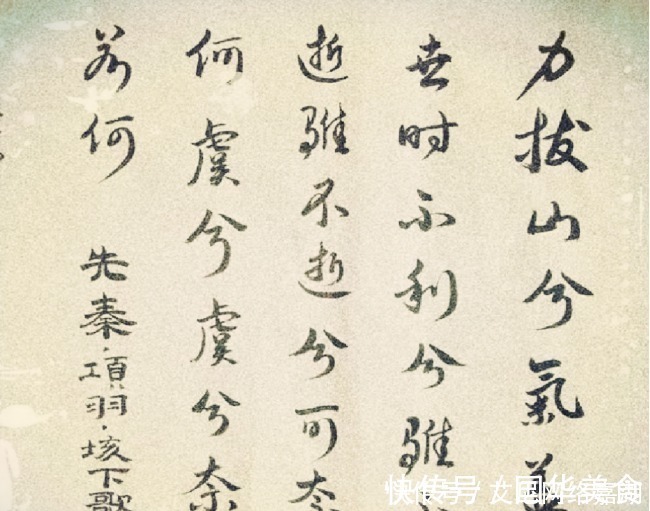 力拔山兮氣
世时不利兮骓
逝骓不逝兮可奈
何虞兮虞兮奈
若何
先秦·項羽·垓下歌
快传号/